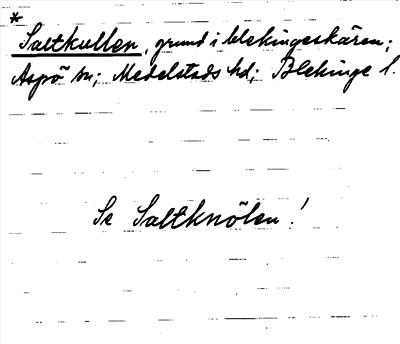 *
Saltkullen, grund i blekingeskären;
Aspö sn; Medelstads hd; Blekinge l.
Se Saltknölen!